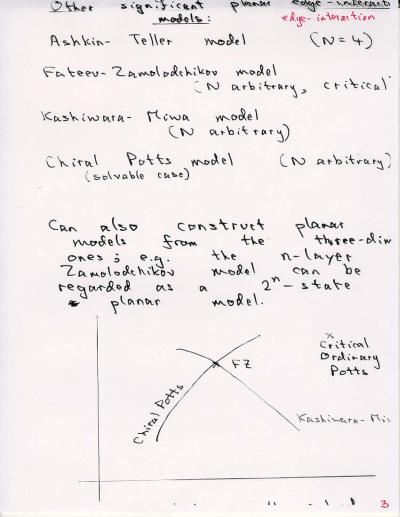 Other significant planar edge-interacti
models: edge-interaction
Ashkin-Teller model (N=4)
Fateev-Zamolodchikov model
(N arbitrary, critical
Kashiwara-Miwa model
(N arbitrary)
Chiral Potts model (N arbitrary)
(solvable case)
Can also construct planar
models from the three-dim
ones; e.g. the n-layer
Zamolodchikov model can be
regarded as a 2ⁿ-state
planar model.
x
Critical
Ordinary
Potts
FZ
Chiral Potts
Kashiwara-Mi
3